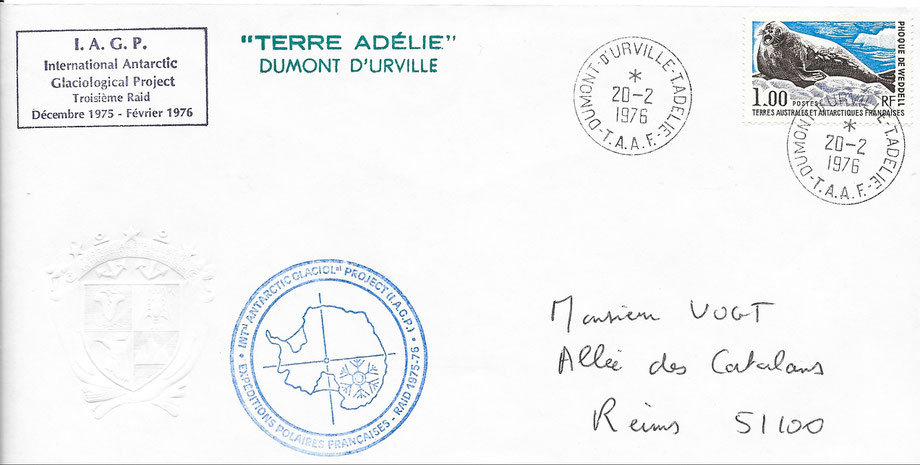 I. A. G. P.
International Antarctic
Glaciological Project
Troisième Raid
Décembre 1975 - Février 1976
"TERRE ADÉLIE"
DUMONT D'URVILLE
DUMONT-D'URVILLE-T.ADELIE
*
20-2
1976
-T.A.A.F.-
PHOQUE DE WEDDELL
1.00 POSTES RF
TERRES AUSTRALES ET ANTARCTIQUES FRANÇAISES
DUMONT-D'URVILLE-T.ADELIE
*
20-2
1976
-T.A.A.F.-
INTal ANTARCTIC GLACIOLal PROJECT (I.A.G.P.)
EXPÉDITIONS POLAIRES FRANÇAISES - RAID 1975-76
Monsieur VOGT
Allée des Catalans
Reims 51100